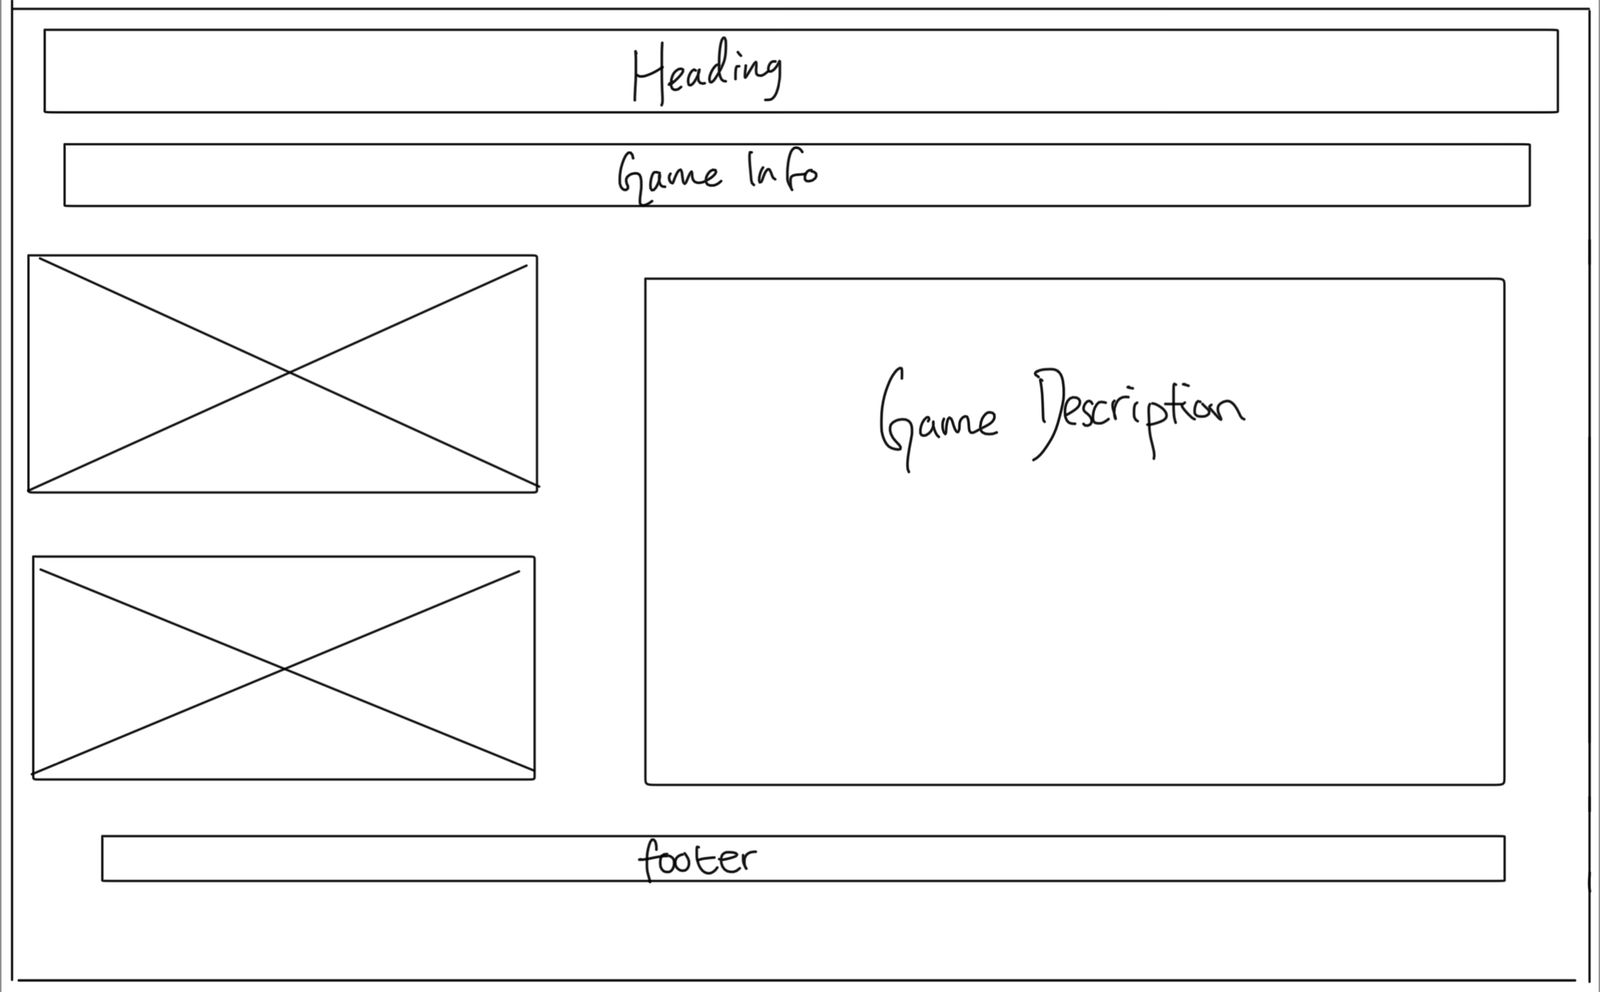 Heading
Game Info
Game Description
footer